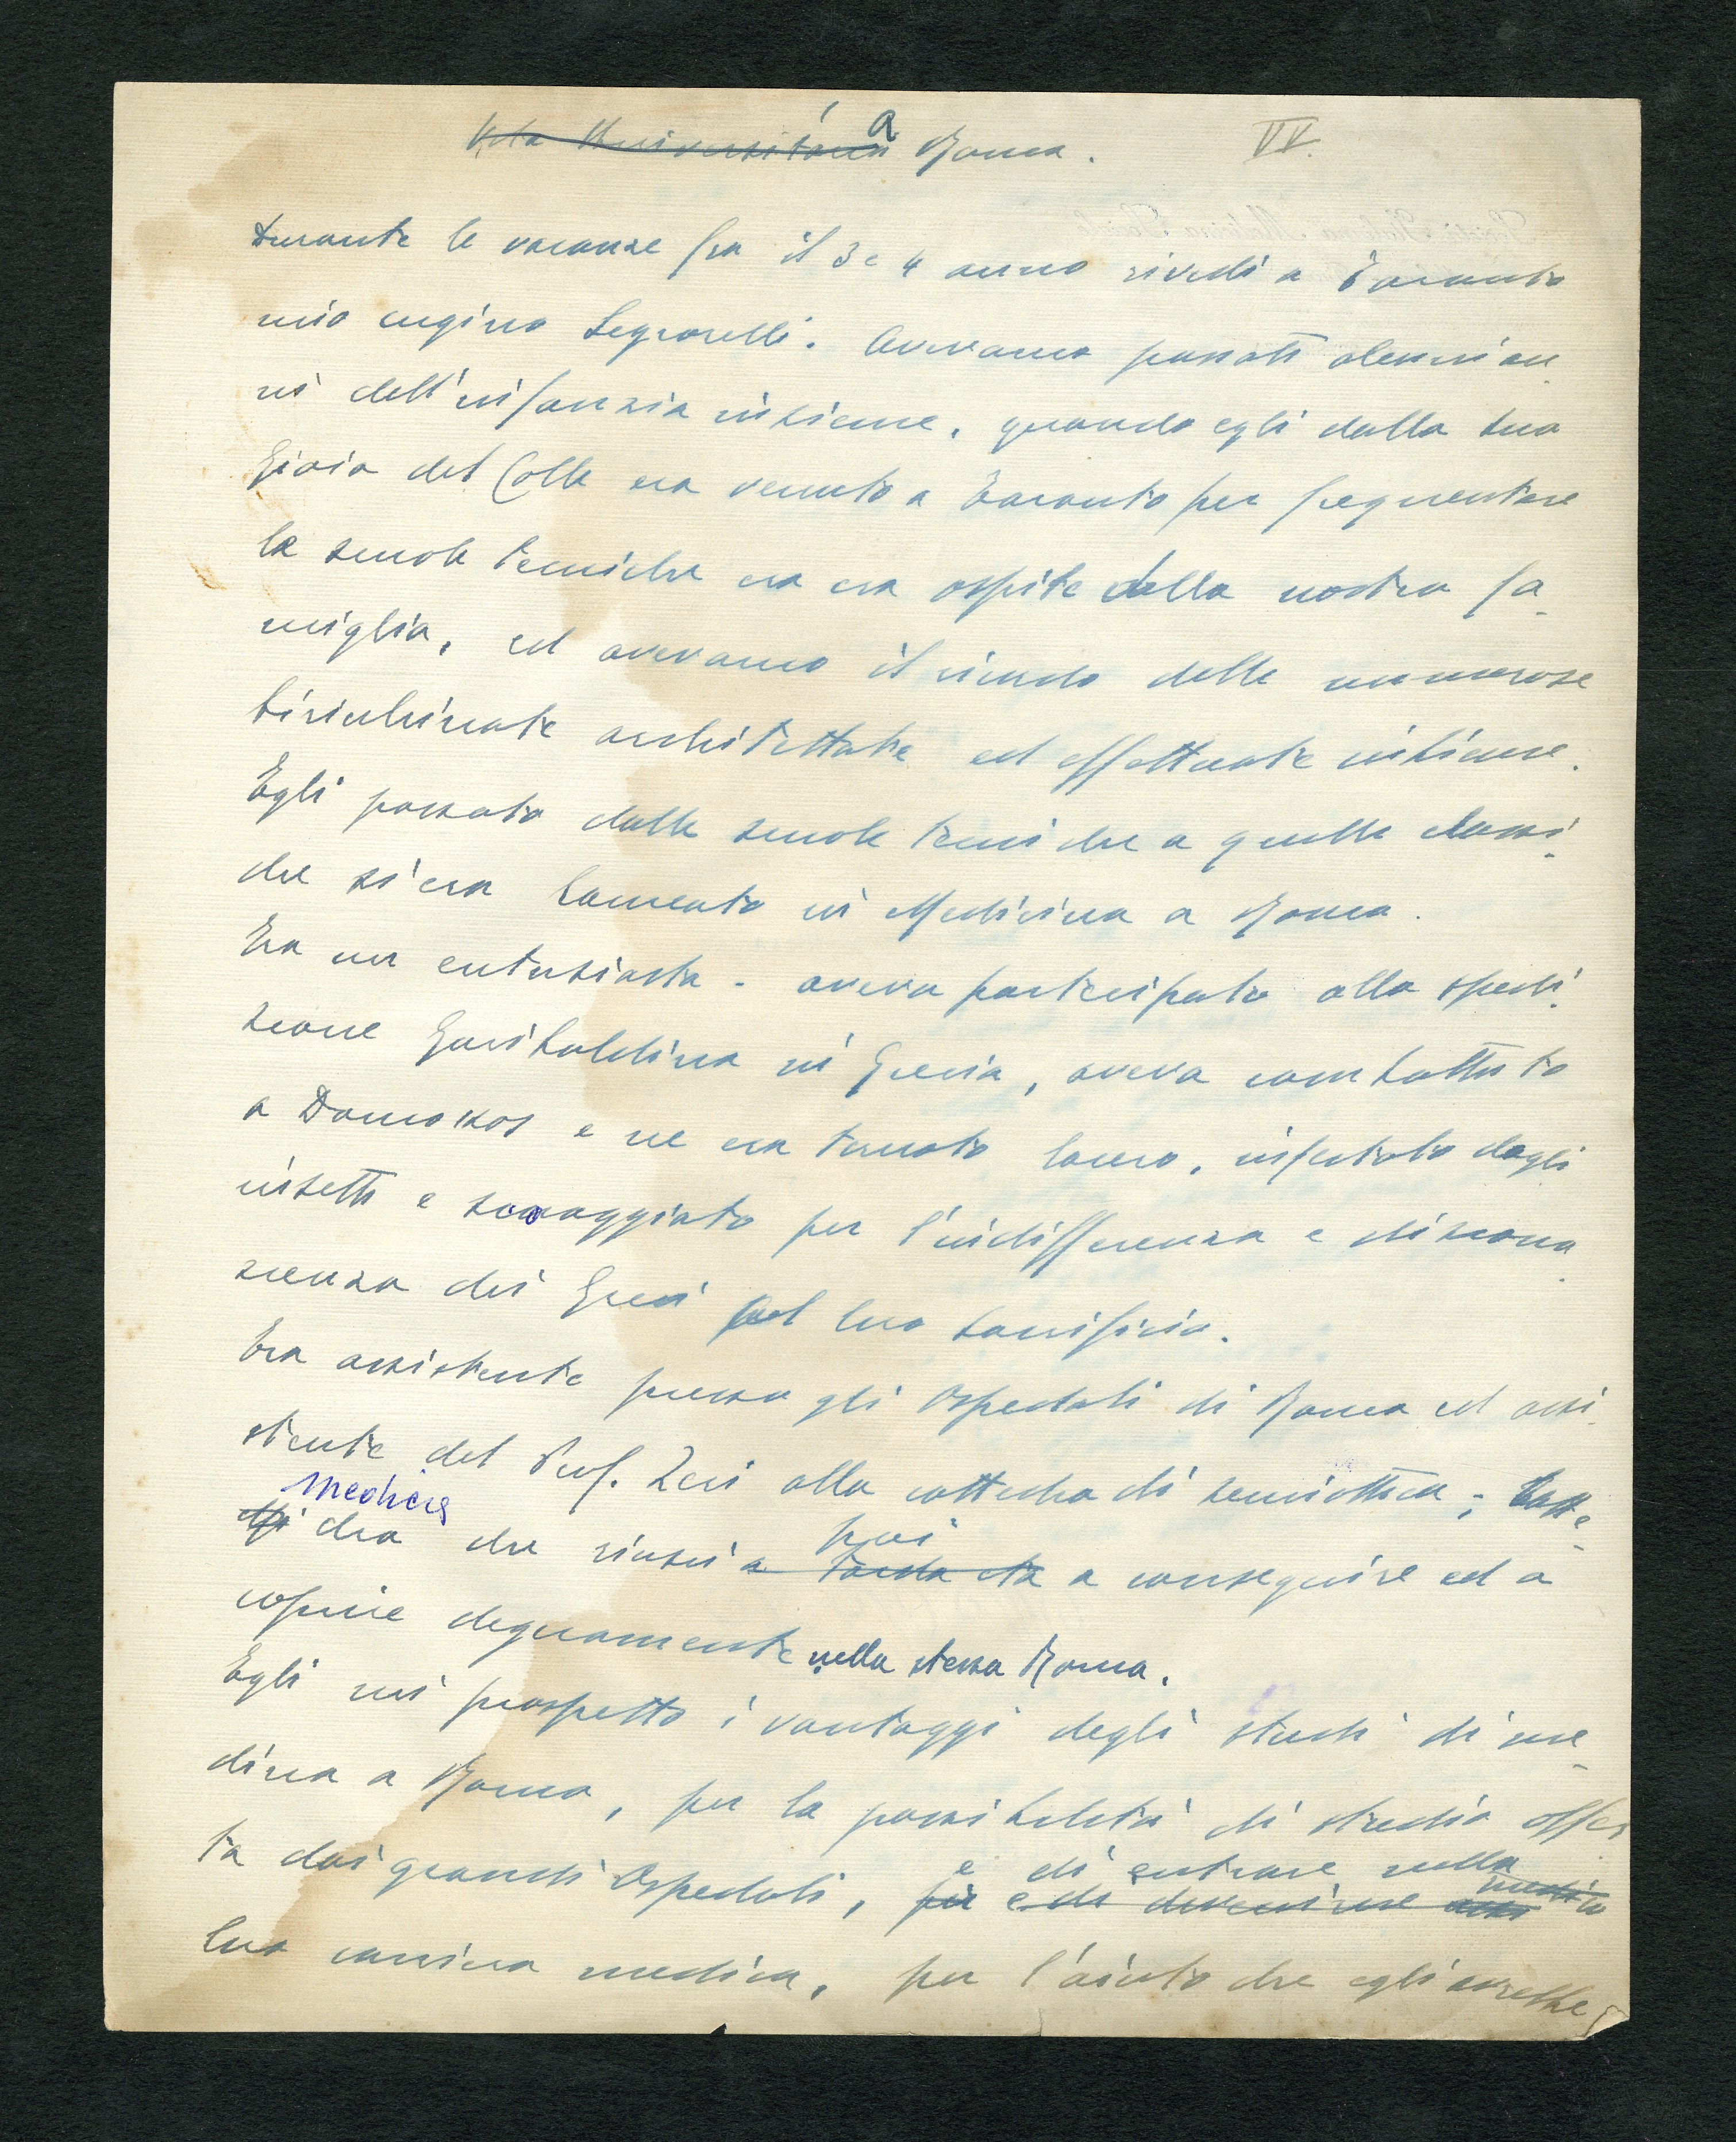 Vita Universitaria a Roma. VV.
Durante le vacanze fra il 3 e 4 anno rividi a Taranto
mio cugino Signorelli. Avevamo passati alcuni an_
ni dell'infanzia insieme, quando egli dalla sua
Gioia del Colle era venuto a Taranto per frequentare
le scuole tecniche era ospite della nostra fa_
miglia, ed avevamo il ricordo delle numerose
birichinate architettate ed effettuate insieme.
Egli passato dalle scuole tecniche a quelle classi_
che si era laureato in Medicina a Roma.
Era un entusiasta - aveva partecipato alla spedi_
zione Garibaldina in Grecia, aveva combattuto
a Domokos e ne era tornato lacero, infestato dagli
insetti e scoraggiato per l'indifferenza e discono_
scenza dei Greci pel loro sacrificio.
Era assistente presso gli Ospedali di Roma ed assi_
stente del Prof. Zeri alla cattedra di semiottica; Catte_
medica
dra che riuscì a tarda età poi a conseguire ed a
coprire degnamente nella stessa Roma.
Egli mi prospettò i vantaggi degli studi di me_
dicina a Roma, per la possibilità di studio offer
ta dai grandi Ospedali, e di entrare nella
e di divenire
loro carriera medica, per l'aiuto che egli avrebbe